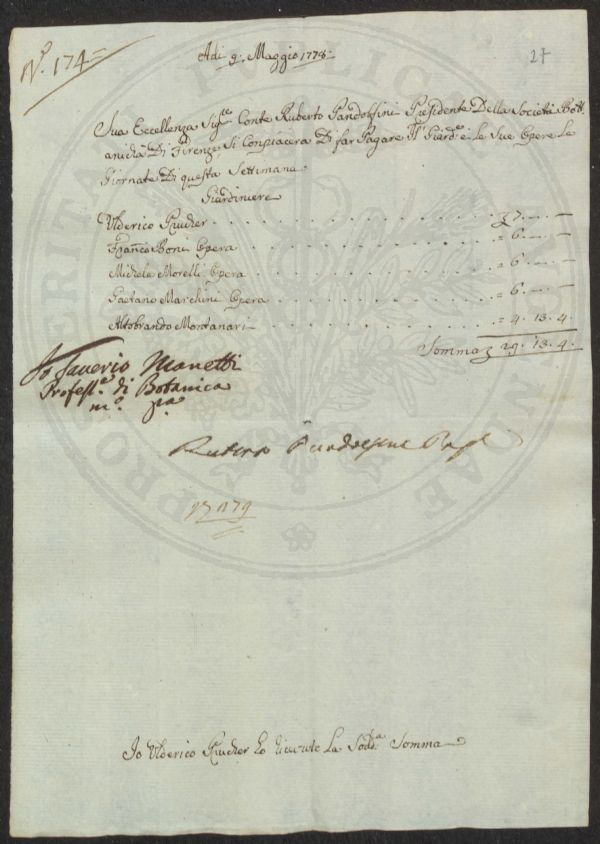 N.º 174=
27
Adi 9. Maggio 1778.
Sua Eccellenza Sig.re Conte Ruberto Pandolfini Presidente Della Società Bott.
anicha Di Firenze, Si Conpiacera Di far Pagare Il Giard.e e le Sue Opere Le
Giornate Di questa Settimana.
Giardiniere
Ulderico Prucker . . . 7. — —
Fran.co Boni Opera . . . = 6. — —
Michele Morelli Opera . . . = 6. — —
Gaetano Marchini Opera . . . = 6. — —
Altobrando Montanari . . . = 4. 13. 4.
Somma 29. 13. 4.
Io Saverio Manetti
Profess.e di Botanica
m.º p.a
Ruberto Pandolfini
Io Ulderico Prucker Ho Riceuto La Sod.a Somma